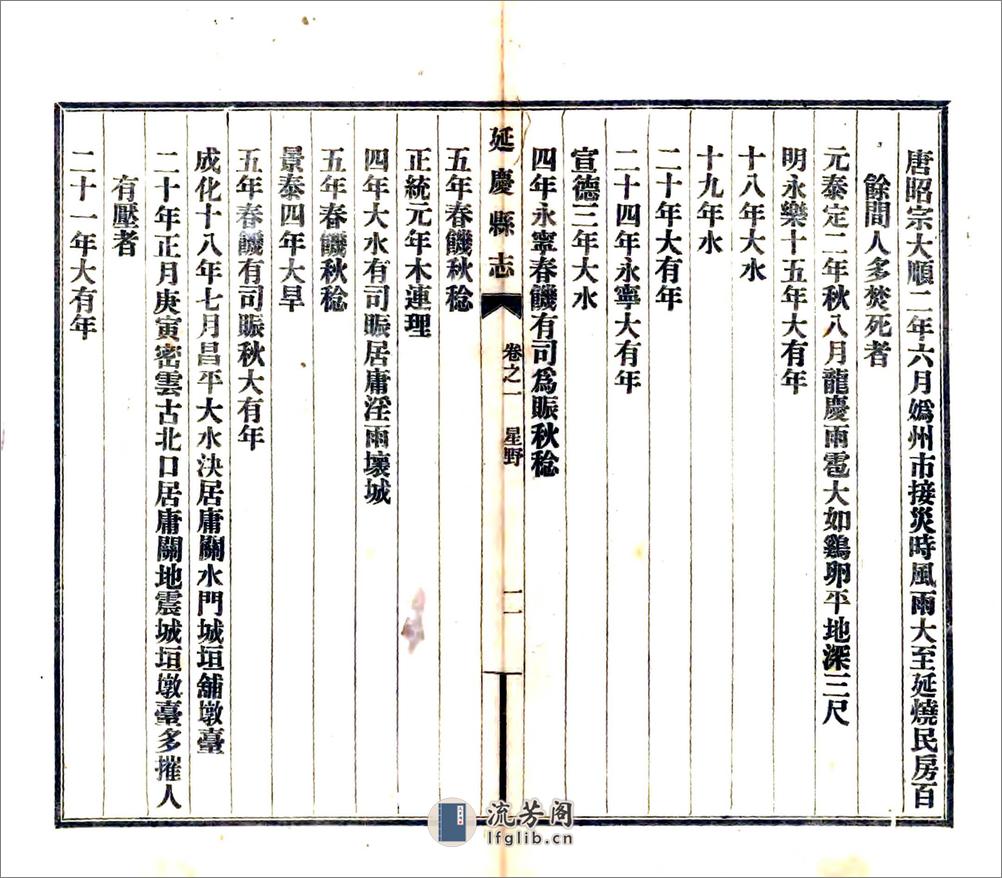 唐昭宗大順二年六月嬀州市接災時風雨大至延燒民房百
餘間人多焚死者
元泰定二年秋八月龍慶雨雹大如鷄卵平地深三尺
明永樂十五年大有年
十八年大水
十九年水
二十年大有年
二十四年永寧大有年
宣德三年大水
四年永寧春饑有司爲賑秋稔
延慶縣志
卷之一 星野
二
五年春饑秋稔
正統元年木連理
四年大水有司賑居庸淫雨壞城
五年春饑秋稔
景泰四年大旱
五年春饑有司賑秋大有年
成化十八年七月昌平大水決居庸關水門城垣舖墩臺
二十年正月庚寅密雲古北口居庸關地震城垣墩臺多摧人
有壓者
二十一年大有年
流芳阁
lfglib.cn